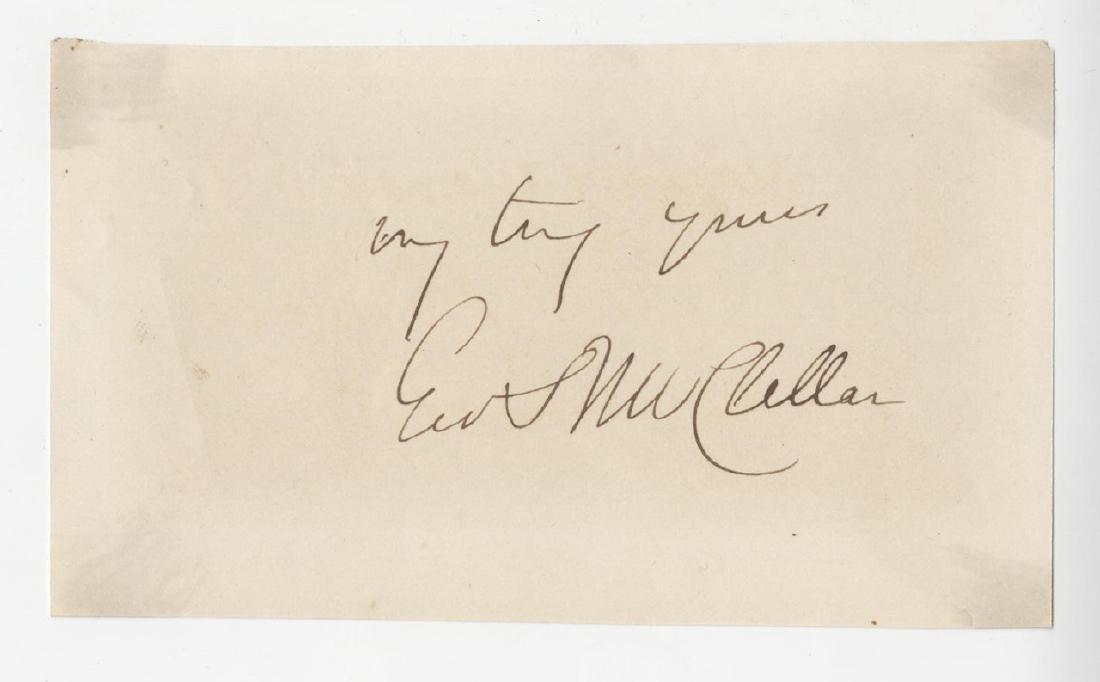 very truly yours
Geo B McClellan